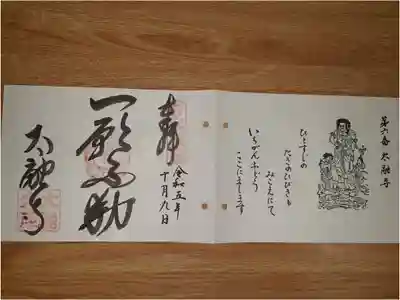 第六番 太融寺
ひとすじの
たきのひびきも
みこえにて
いちがんふどう
ここにまします
奉拝
令和五年
十月九日
一願不動
太融寺